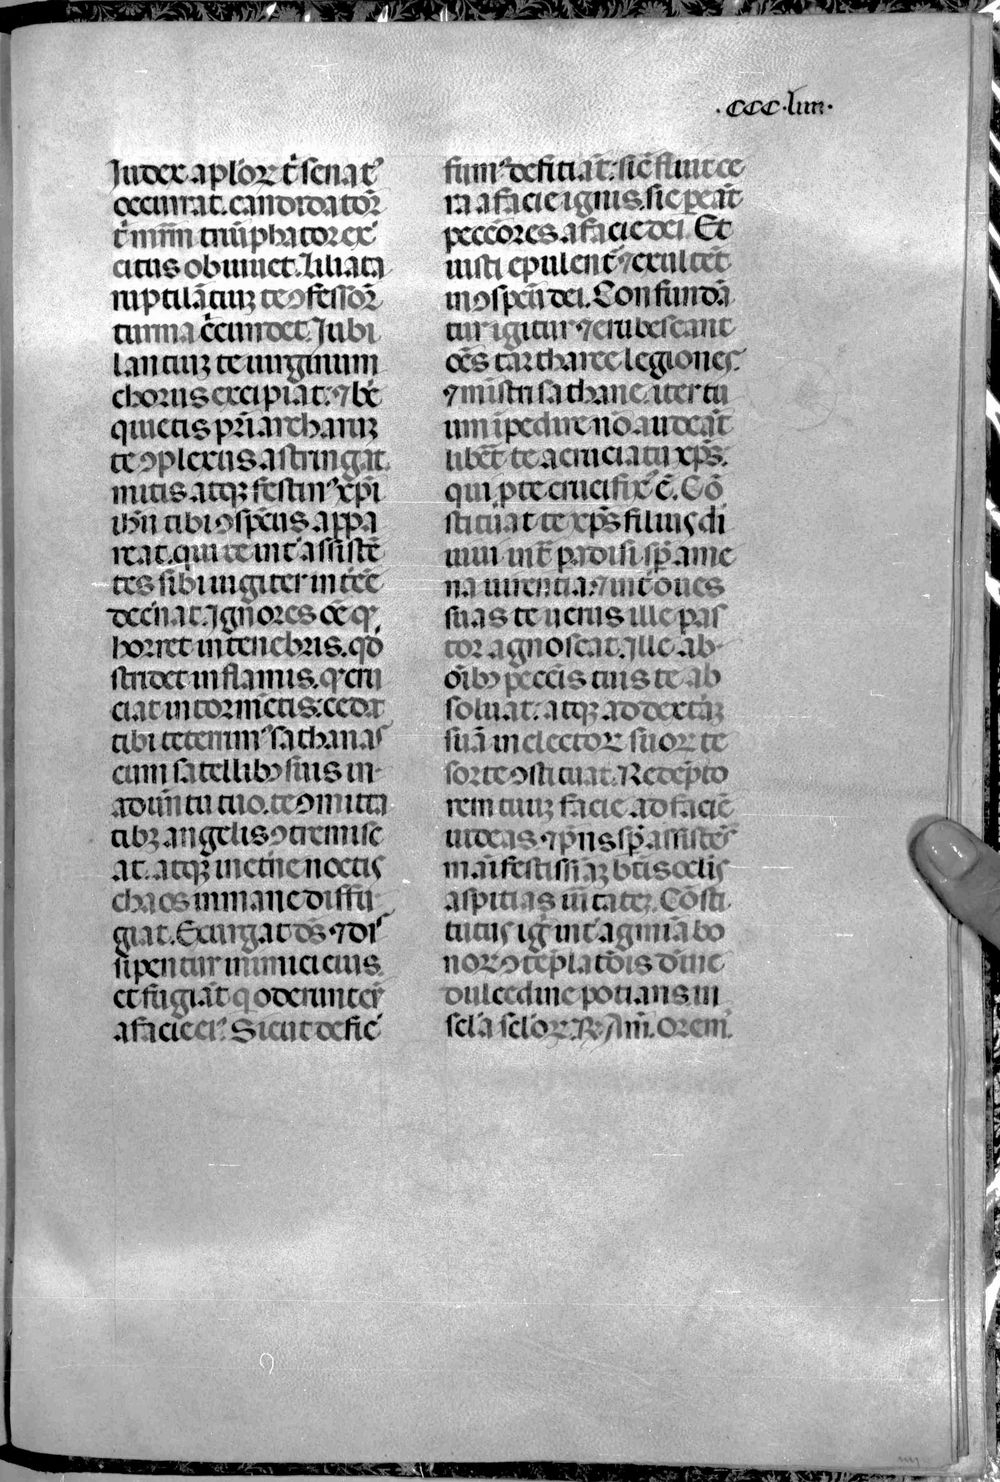 .CCC.liiii.
Iudex aplorꝝ t̄ senat᷒
occurrat. candidatoꝝ
t̄ minꝫ triūphator ex᷒
citus obuiuet. liliata
rup tilātiuꝫ te ꝯfessoꝝ
turma c̄cundet. Jubi
lantiuꝫ te uirginum
chorus excipiat. ⁊ be᷒
quietis pr̄iarcharuꝫ
te ꝯplexus astringat.
mitis atqꝫ festiu᷒ xp̄i
ih̄u tibi ꝯspc̄us appa
reat. qui te int̄ assistē
tes sibi iugiter in tēe
dec̄nat. Ignores oē q᷒
horret in tenebris. qd̄
stridet in flam̄is. q᷒ cru
ciat in tormēctis. cedat
tibi teterrim᷒ sathanas
cum satellitibꝫ suis in
aduētu tuo. te ꝯmitta
tibꝫ angelis ꝯtremisc
at. atqꝫ in et̄ne noctis
chaos immane diffu
giat. Exurgat dn̄s ⁊ di᷒
sipentur inimici eius.
et fugiāt q oderunt eū
a facie ei᷒. Sicut defic᷒
fum᷒ defitiāt. sic̄ fluit ce
ra a facie ignis. sic peāt
peccōres a facie dei. Et
iusti epulent᷒ ⁊ exultēt
in ꝯspc̄u dei. Confundā
tur igitur ⁊ erubescant
oēs tartharee legiones.
⁊ ministri sathane. iter tu
um īpedire nō audeāt
liberet te a cruciatu xp̄s.
qui p te crucifix᷒ ē. Cō
stituat te xp̄s filius di
uiui int̄ padisi sp̄ ame
na uirentia. ⁊ int̄ oues
suas te uerus ille pas
tor agnoscat. Ille ab
oībꝫ peccīs tuis te ab
soluat. atqꝫ ad dextāꝫ
suā in electoꝝ suoꝝ te
sorte ꝯstituat. Redēpto
rem tuuꝫ facie ad faciē
uideas. ⁊ p̄ns sp̄ assistēs
māifestissīaꝫ bt̄is oclis
aspitias uītatē. Cōsti
tutus ig᷒ int̄ agmīa bo
noꝝ ꝯtēplatōis diuīe
dulcedine potiaris in
scl̄a scl̄oꝝ. ℟ Am̄. Orem᷒.